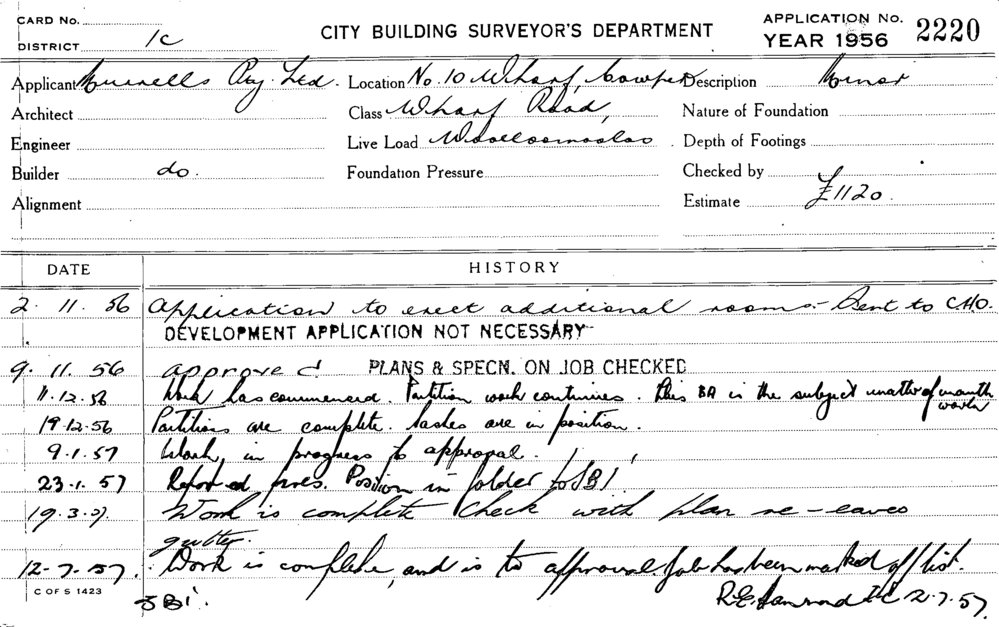 CARD No.
DISTRICT 1c
CITY BUILDING SURVEYOR'S DEPARTMENT
APPLICATION No. 2220
YEAR 1956
Applicant Pty. Ltd. Location No. 10 Wharf, Cowper Description Minor
Architect Class Wharf Road, Nature of Foundation
Engineer Live Load Woolloomooloo Depth of Footings
Builder do. Foundation Pressure Checked by
Alignment Estimate £1120
DATE HISTORY
2. 11. 56 Application to erect additional rooms - Sent to C.H.O.
DEVELOPMENT APPLICATION NOT NECESSARY
9. 11. 56 approved PLANS & SPECN. ON JOB CHECKED
11.12.56 Work has commenced. Partition work continues. This BA is the subject matter of month work
19.12.56 Partitions are complete. are in position.
9.1.57 Work, in progress to approval.
23.1.57 Position in folder to SBI.
19.3.57. Work is complete Check with plan re-eaves
gutter.
12-7.57. Work is complete, and is to approval. Job has been marked off list.
C OF S 1423
SBI. 2.7.57.